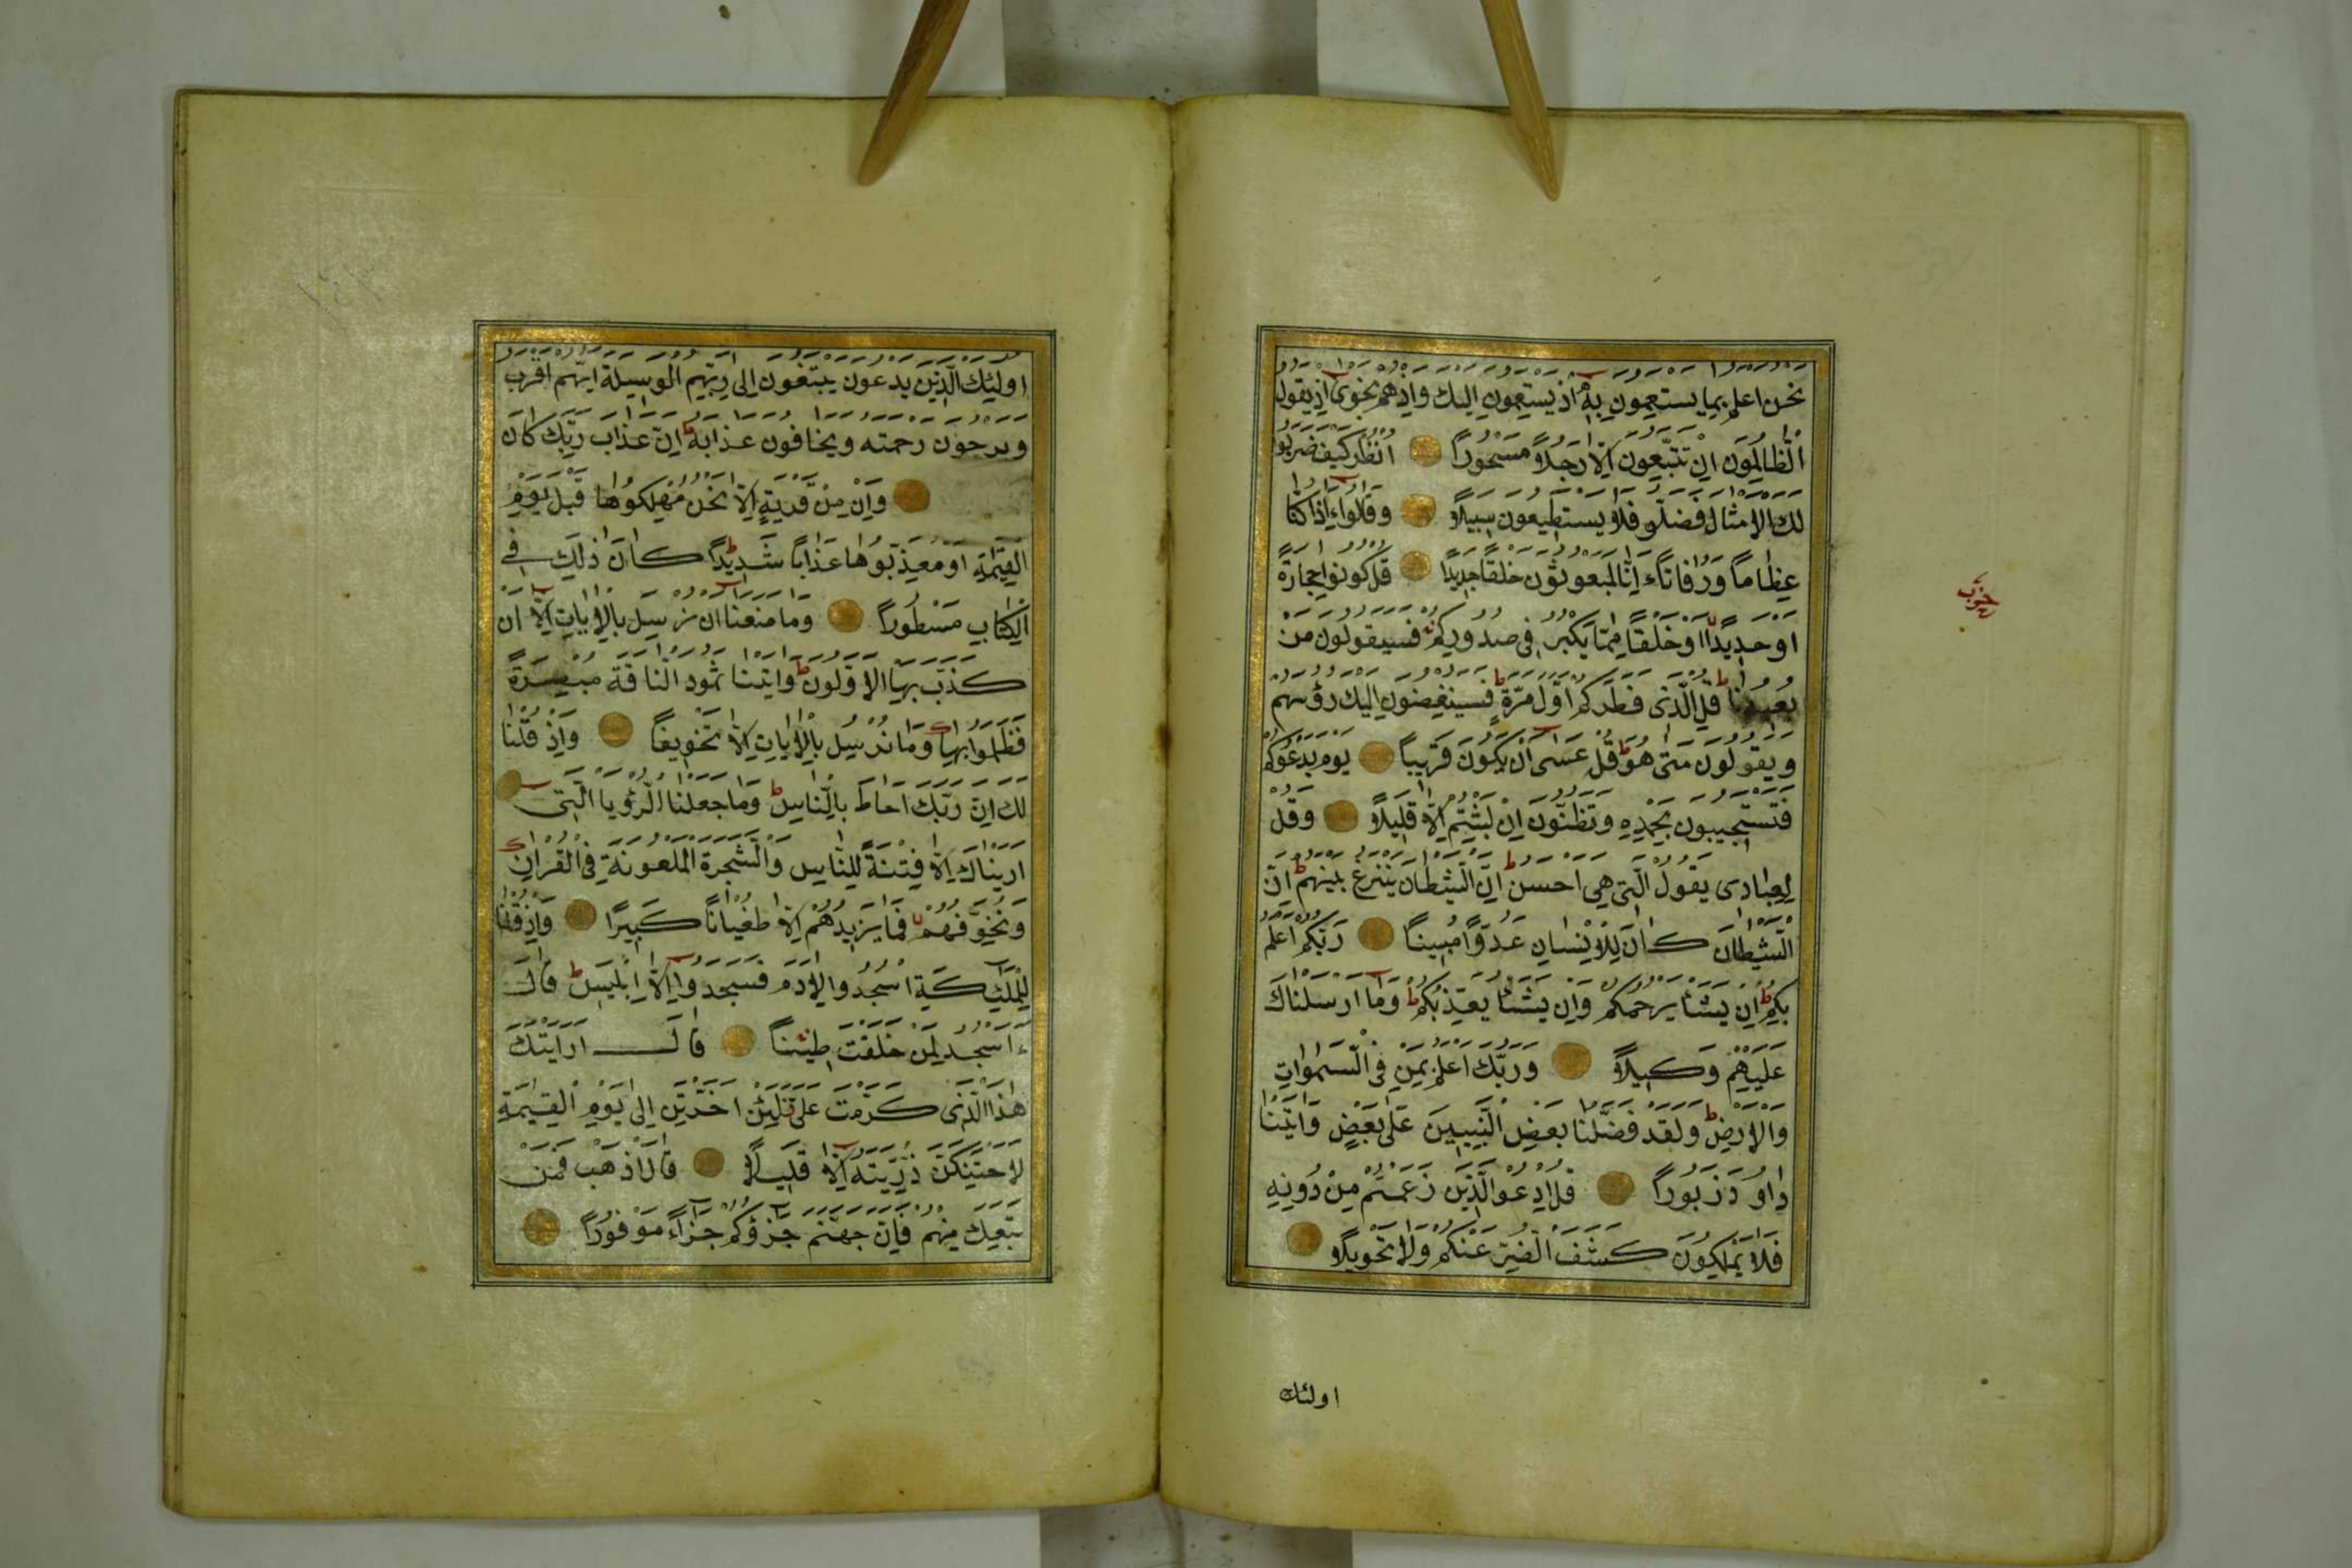 نحن اعلم بما يستمعون به اذ يستمعون اليك واذ هم نجوى اذ يقول
الظالمون ان تتبعون الا رجلا مسحورا انظر كيف ضربوا
لك الامثال فضلوا فلا يستطيعون سبيلا وقالوا ءاذا كنا
عظاما ورفاتا ءانا لمبعوثون خلقا جديدا قل كونوا حجارة
او حديدا او خلقا مما يكبر في صدوركم فسيقولون من
يعيدنا قل الذى فطركم اول مرة فسينغضون اليك رؤسهم
ويقولون متى هو قل عسى ان يكون قريبا يوم يدعوكم
فتستجيبون بحمده وتظنون ان لبثتم الا قليلا وقل
لعبادى يقول التى هى احسن ان الشيطان ينزغ بينهم ان
الشيطان كان للانسان عدوا مبينا ربكم اعلم
بكم ان يشا يرحمكم وان يشا يعذبكم وما ارسلناك
عليهم وكيلا وربك اعلم بمن فى السموات
والارض ولقد فضلنا بعض النبيين على بعض واتينا
داود زبورا قل ادعوا الذين زعمتم من دونه
فلا يملكون كشف الضر عنكم ولا تحويلا
اولئك
حزب
اولئك الذين يدعون يبتغون الى ربهم الوسيلة ايهم اقرب
ويرجون رحمته ويخافون عذابه ان عذاب ربك كان
وان من قرية الا نحن مهلكوها قبل يوم
القيمة او معذبوها عذابا شديدا كان ذلك في
الكتاب مسطورا وما منعنا ان نرسل بالايات الا ان
كذب بها الاولون واتينا ثمود الناقة مبصرة
فظلموا بها وما نرسل بالايات الا تخويفا واذ قلنا
لك ان ربك احاط بالناس وما جعلنا الرؤيا التى
اريناك الا فتنة للناس والشجرة الملعونة فى القران
ونخوفهم فما يزيدهم الا طغيانا كبيرا واذ قلنا
للملئكة اسجدوا لادم فسجدوا الا ابليس قال
ءاسجد لمن خلقت طينا قال ارايتك
هذا الذى كرمت على لئن اخرتن الى يوم القيمة
لاحتنكن ذريته الا قليلا قال اذهب فمن
تبعك منهم فان جهنم جزؤكم جزاء موفورا